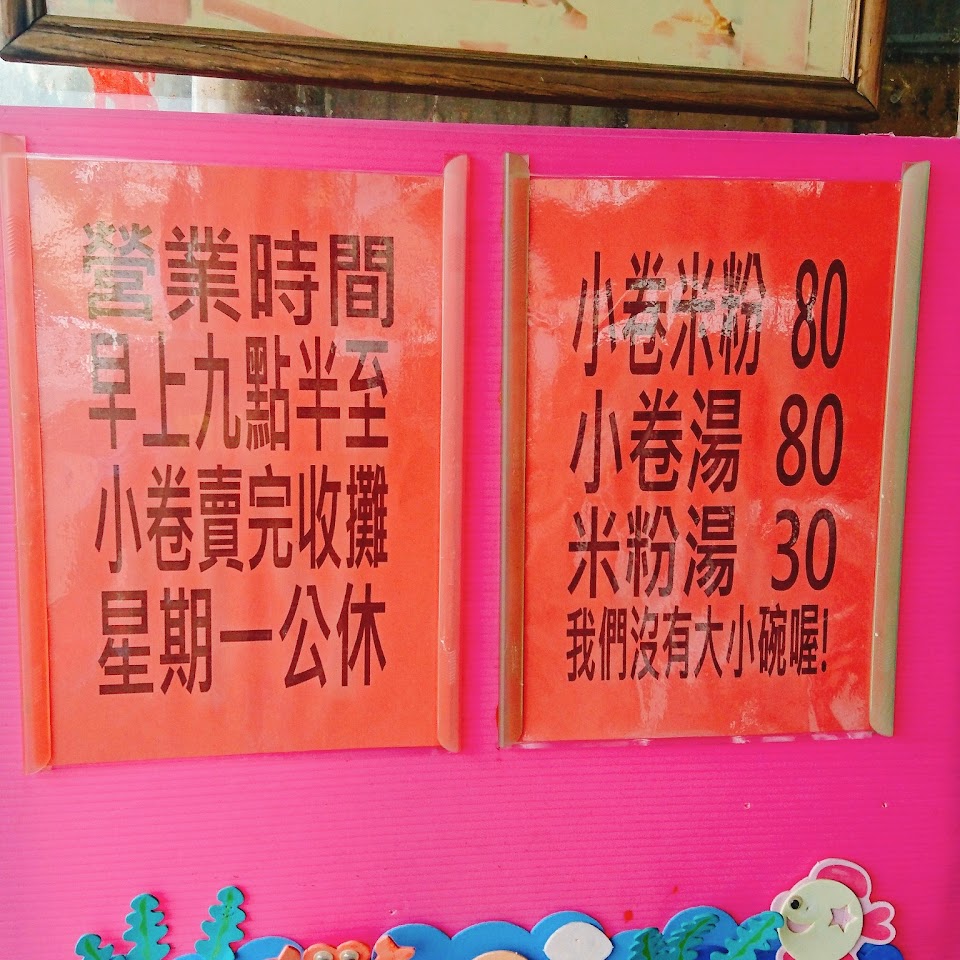 營業時間
早上九點半至
小卷賣完收攤
星期一公休
小卷米粉 80
小卷湯 80
米粉湯 30
我們沒有大小碗喔!